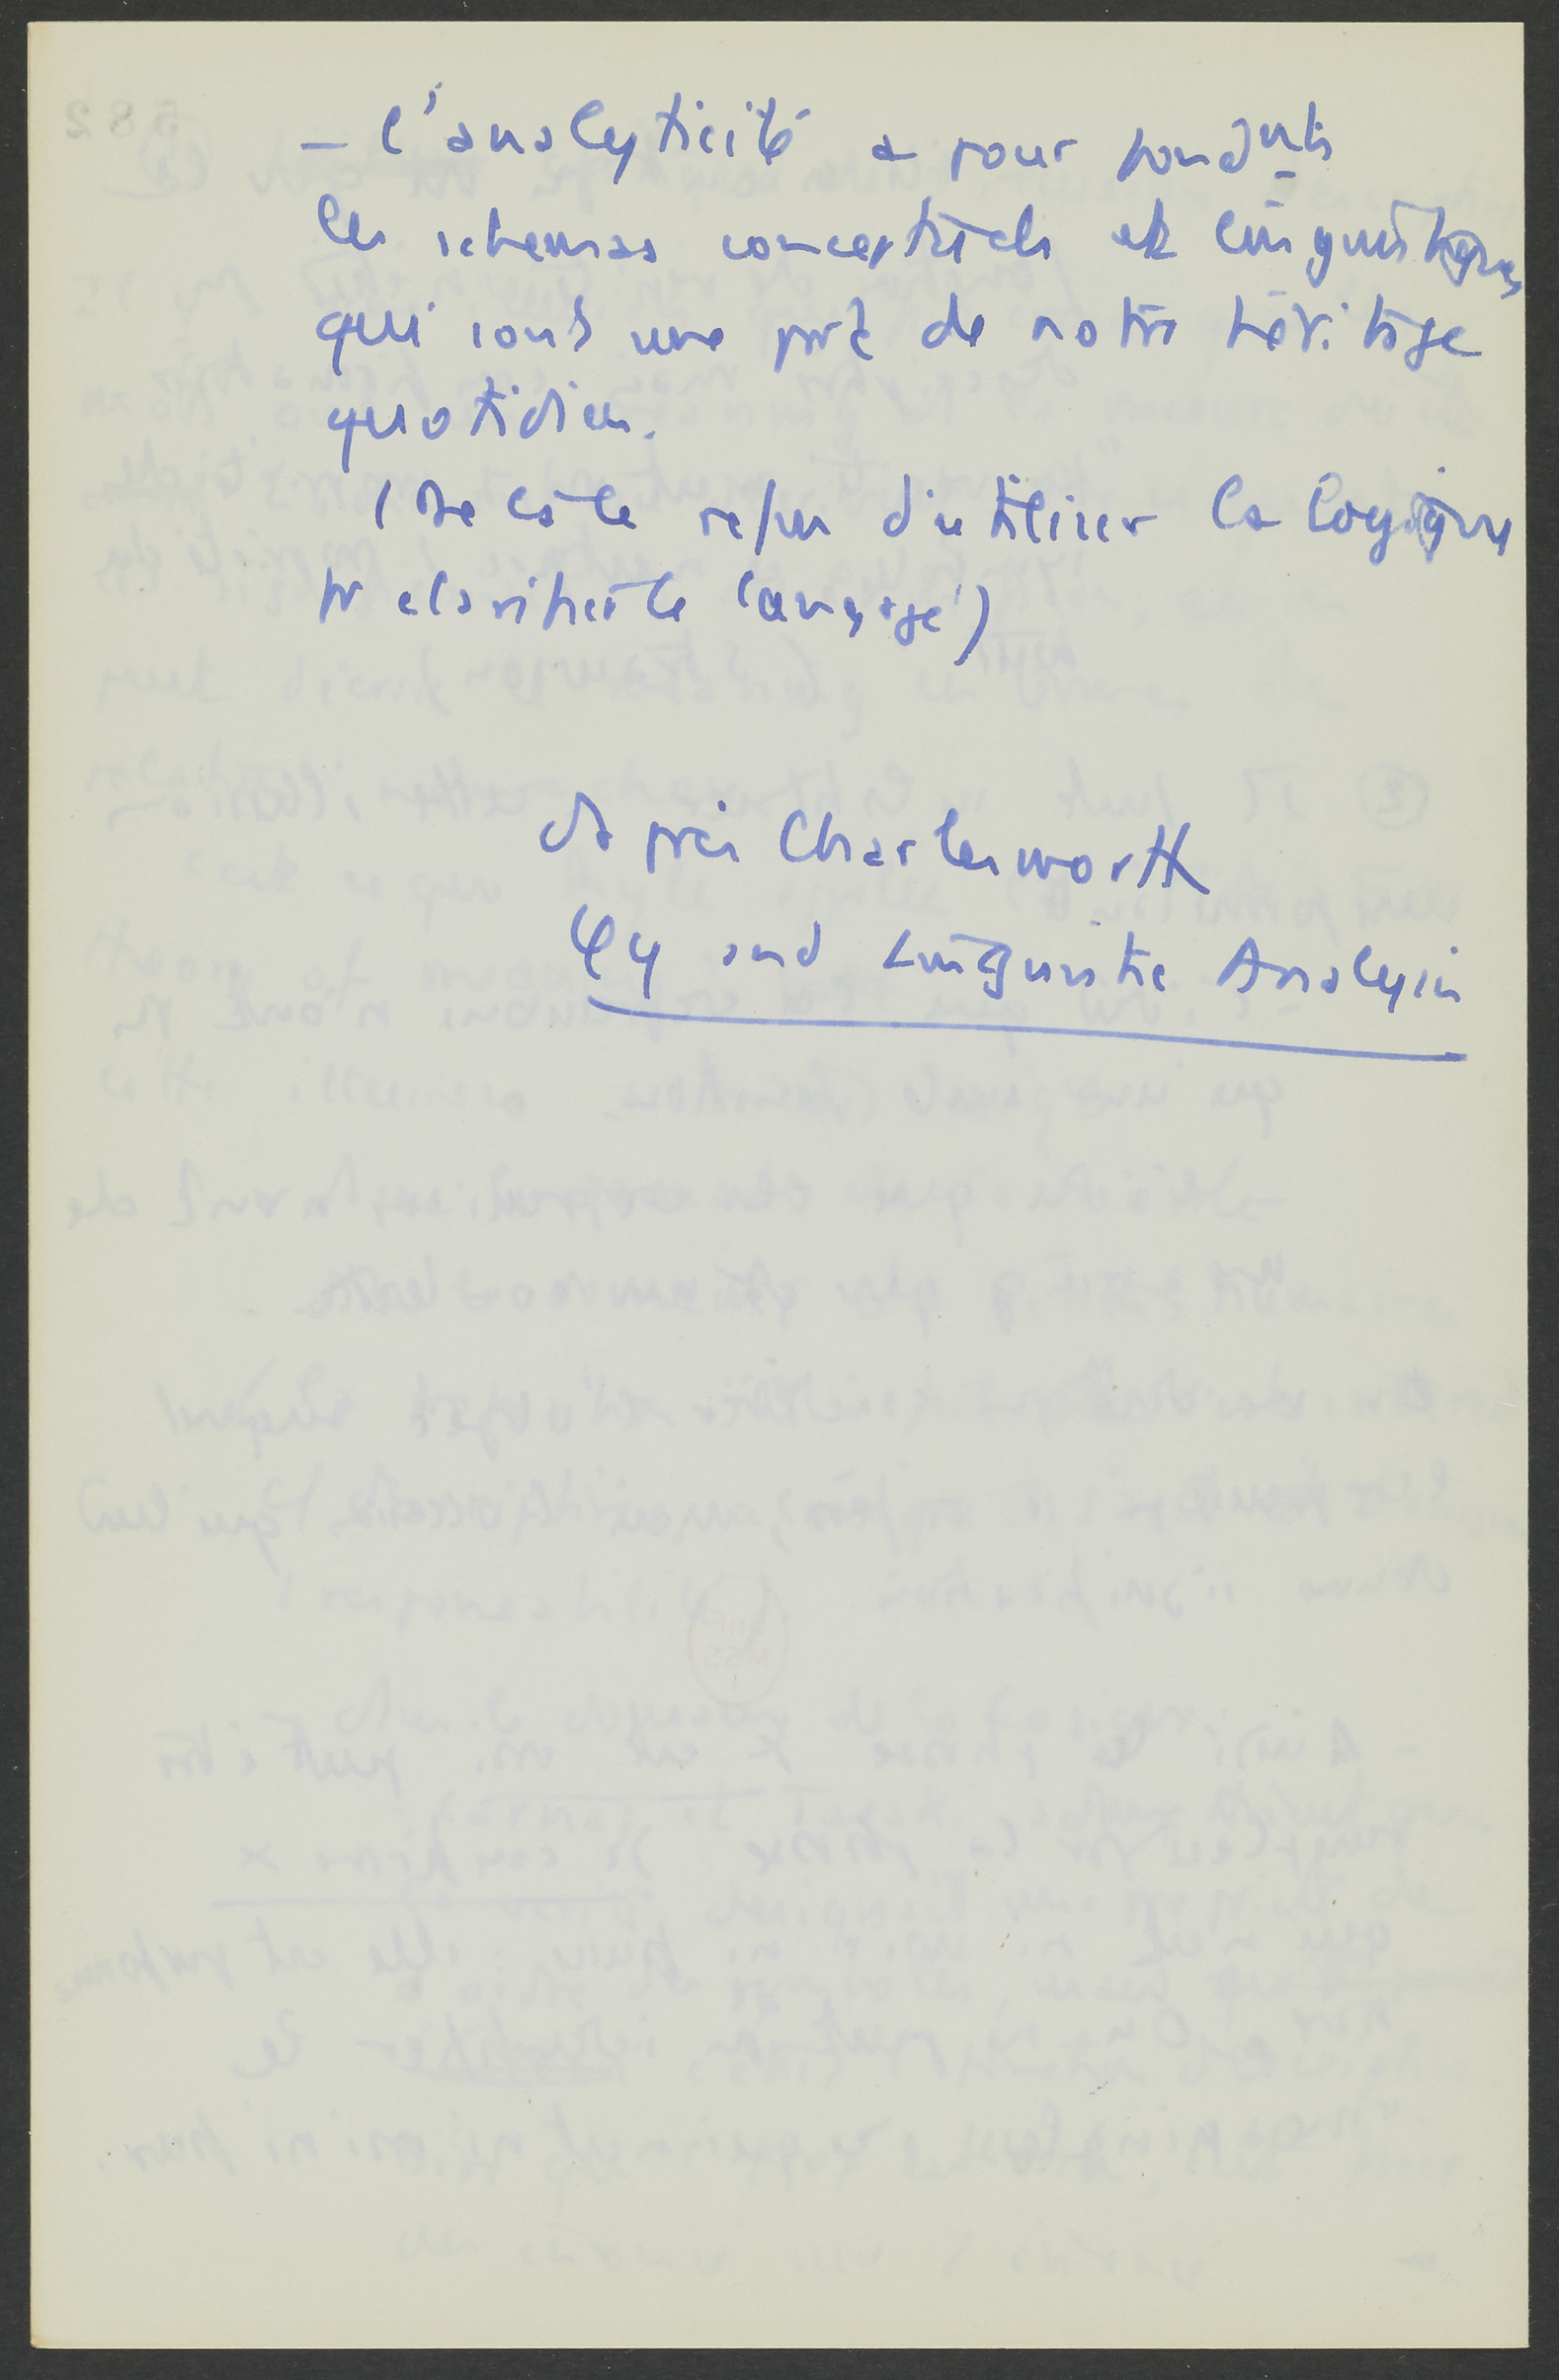 — l'analyticité a pour fondnts
les schemas conceptuels et linguistiques
qui sont une part de notre héritage
quotidien.
(De là le refus d'utiliser la logique
pr clarifier le langage)
D'après Charlesworth
φy and Linguistic Analysis